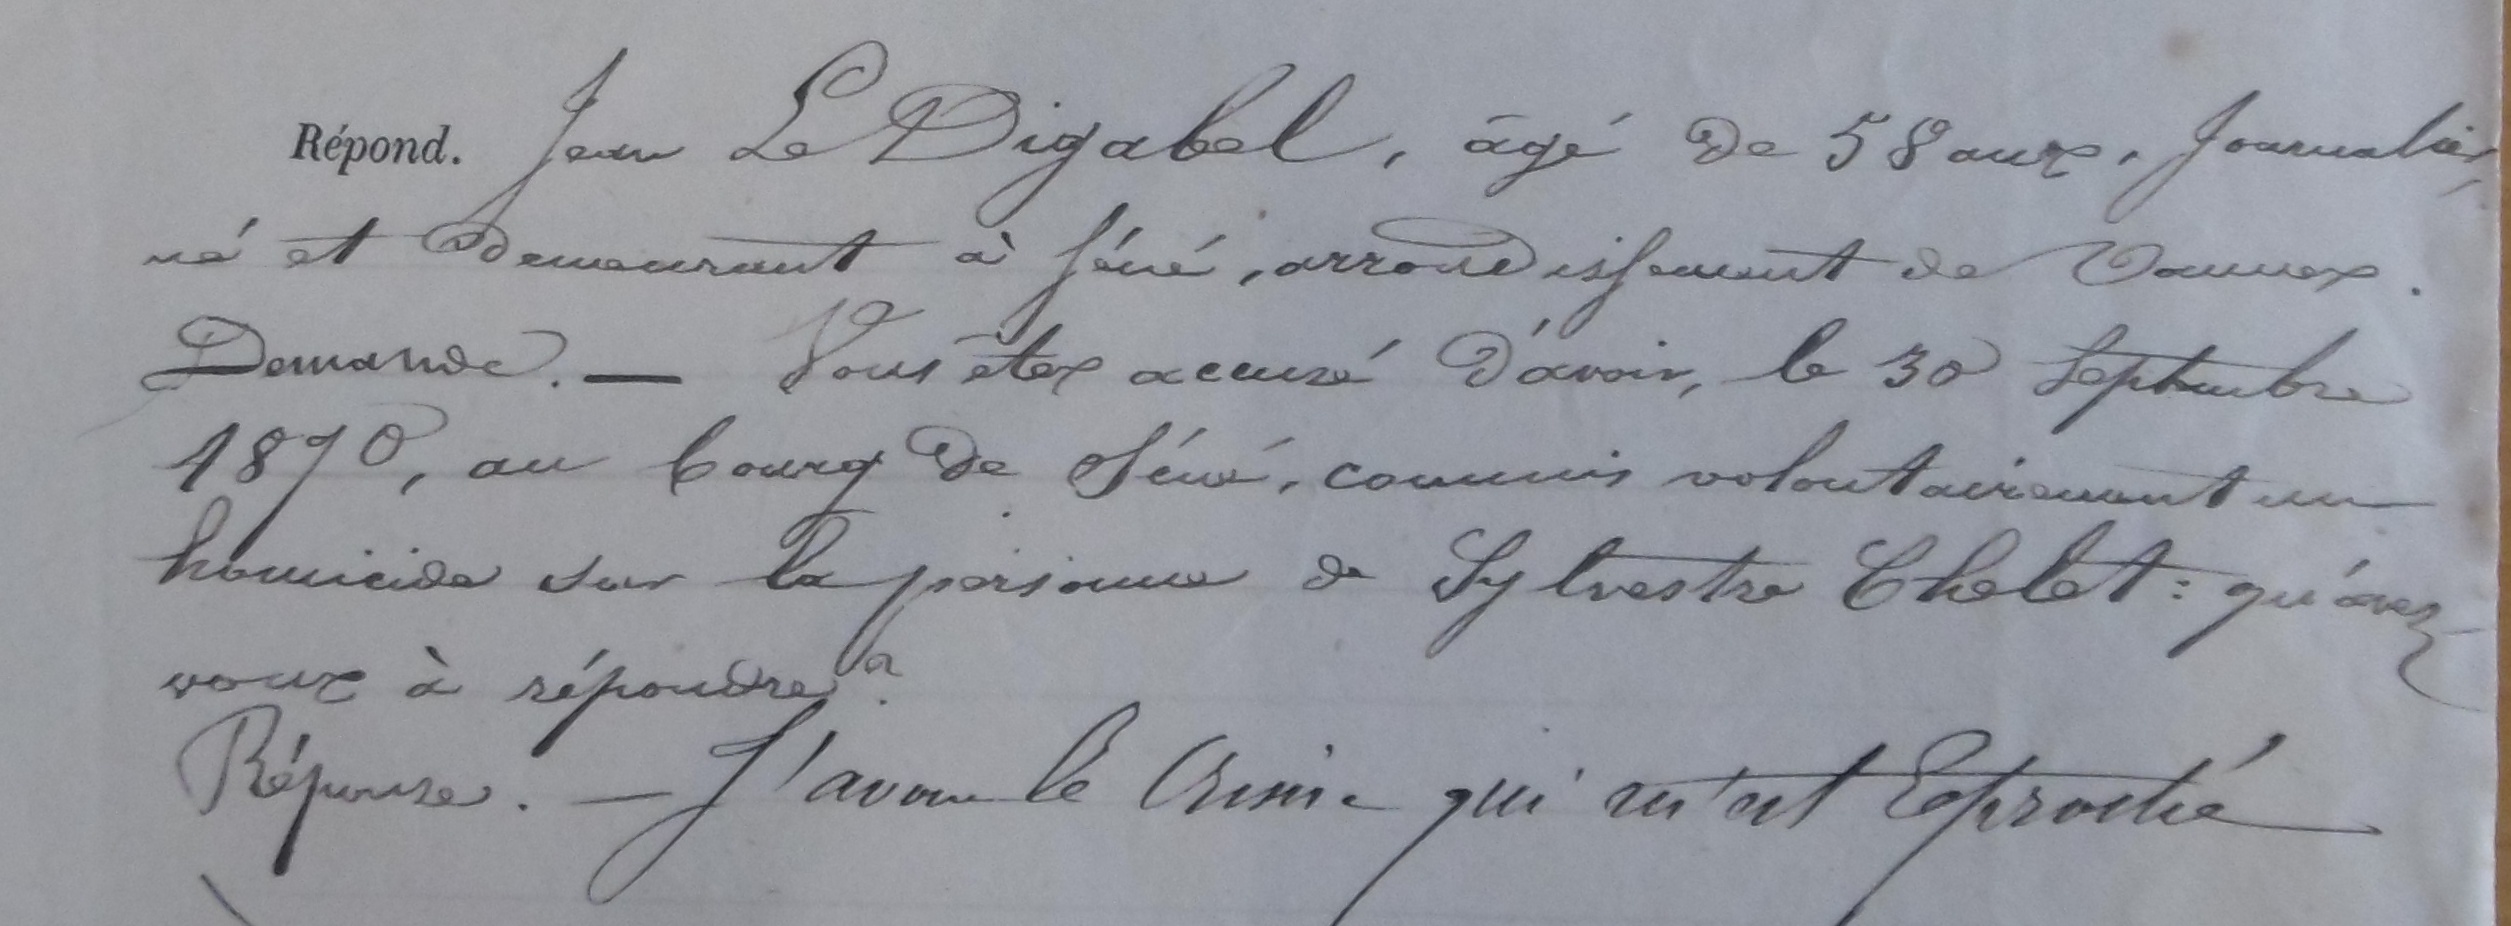 Répond. Jean Le Digabel, âgé de 58 ans, Journalier,
né et demeurant à Séné, arrondissement de Vannes.
Demande. — Vous êtes accusé d'avoir, le 30 Septembre
1870, au bourg de Séné, commis volontairement un
homicide sur la personne de Sylvestre Chelet : qu'avez
vous à répondre ?
Réponse. — J'avoue le Crime qui m'est reproché